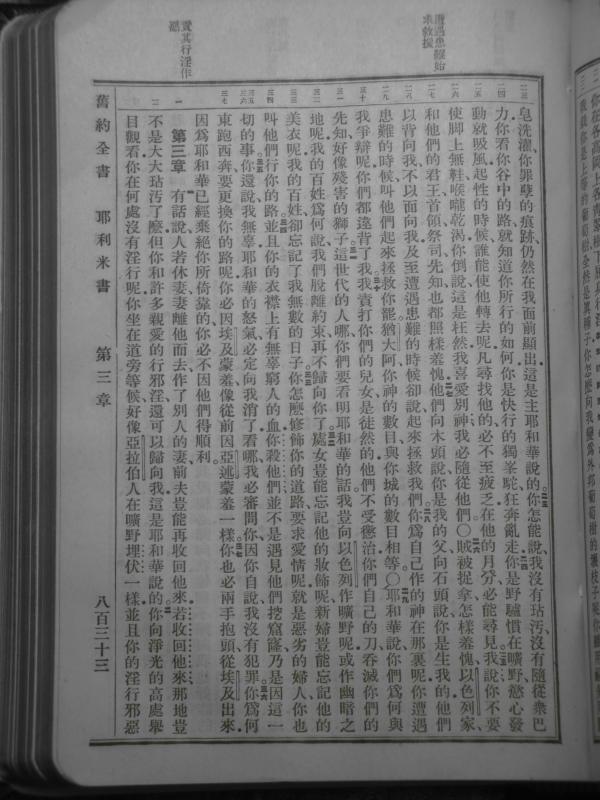 遭遇患難始求救援
責其行淫作惡
皂洗濯你罪孽的痕跡仍然在我面前顯出這是主耶和華說的你怎能說我沒有玷汚沒有隨從衆巴
力你看你谷中的路就知道你所行的如何你是快行的獨峯駝狂奔亂走你是野驢慣在曠野慾心發
動就吸風起性的時候誰能使他轉去呢凡尋找他的必不至疲乏在他的月分必能尋見我說你不要
使脚上無鞋喉嚨乾渴你倒說這是枉然我喜愛別神我必隨從他們〇賊被捉拿怎樣羞愧以色列家
和他們的君王首領祭司先知也都照樣羞愧他們向木頭說你是我的父向石頭說你是生我的他們
以背向我不以面向我及至遭遇患難的時候卻說起來拯救我們你爲自己作的神在那裏呢你遭遇
患難的時候叫他們起來拯救你罷猶大阿你神的數目與你城的數目相等〇耶和華說你們爲何與
我爭辯呢你們都違背了我我責打你們的兒女是徒然的他們不受懲治你們自己的刀吞滅你們的
先知好像殘害的獅子這世代的人哪你們要看明耶和華的話我豈向以色列作曠野呢或作幽暗之
地呢我的百姓爲何說我們脫離約束再不歸向你了處女豈能忘記他的妝飾呢新婦豈能忘記他的
美衣呢我的百姓卻忘記了我無數的日子你怎麼修飾你的道路要求愛情呢就是惡劣的婦人你也
叫他們行你的路並且你的衣襟上有無辜窮人的血你殺他們並不是遇見他們挖窟窿乃是因這一
切的事你還說我無辜耶和華的怒氣必定向我消了看哪我必審問你因你自說我沒有犯罪你爲何
東跑西奔要更換你的路呢你必因埃及蒙羞像從前因亞述蒙羞一樣你也必兩手抱頭從埃及出來
因爲耶和華已經棄絕你所倚靠的你必不因他們得順利
第三章 有話說人若休妻妻離他而去作了別人的妻前夫豈能再收回他來若收回他來那地豈
不是大大玷汚了麼但你和許多親愛的行邪淫還可以歸向我這是耶和華說的你向淨光的高處舉
目觀看你在何處沒有淫行呢你坐在道旁等候好像亞拉伯人在曠野埋伏一樣並且你的淫行邪惡
舊約全書 耶利米書 第三章 八百三十三